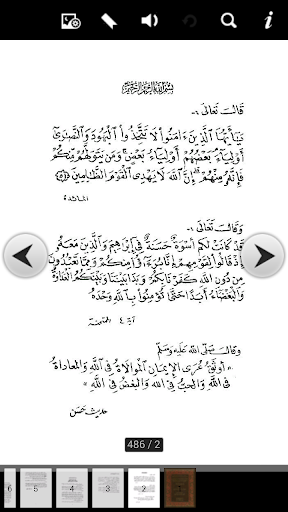 بسم الله الرحمن الرحيم
قَالَ تَعَالَى :-
يَٰٓأَيُّهَا الَّذِينَ ءَامَنُوا۟ لَا تَتَّخِذُوا۟ الْيَهُودَ وَالنَّصَٰرَىٰٓ
أَوْلِيَآءَ بَعْضُهُمْ أَوْلِيَآءُ بَعْضٍ وَمَن يَتَوَلَّهُم مِّنكُمْ
فَإِنَّهُۥ مِنْهُمْ إِنَّ اللَّهَ لَا يَهْدِى الْقَوْمَ الظَّٰلِمِينَ ﴿٥١﴾
المائدة
وَقَالَ تَعَالَى :-
قَدْ كَانَتْ لَكُمْ أُسْوَةٌ حَسَنَةٌ فِىٓ إِبْرَٰهِيمَ وَالَّذِينَ مَعَهُۥٓ
إِذْ قَالُوا۟ لِقَوْمِهِمْ إِنَّا بُرَءَٰٓؤُا۟ مِنكُمْ وَمِمَّا تَعْبُدُونَ
مِن دُونِ اللَّهِ كَفَرْنَا بِكُمْ وَبَدَا بَيْنَنَا وَبَيْنَكُمُ الْعَدَٰوَةُ
وَالْبَغْضَآءُ أَبَدًا حَتَّىٰ تُؤْمِنُوا۟ بِاللَّهِ وَحْدَهُۥٓ
آية ٤ الممتحنة
وقال صلى الله عليه وسلم
« أوثق عرى الإيمان الموالاة في الله والمعاداة
في الله والحب في الله والبغض في الله »
حديث حسن
486 / 2
6 5 4 3 2